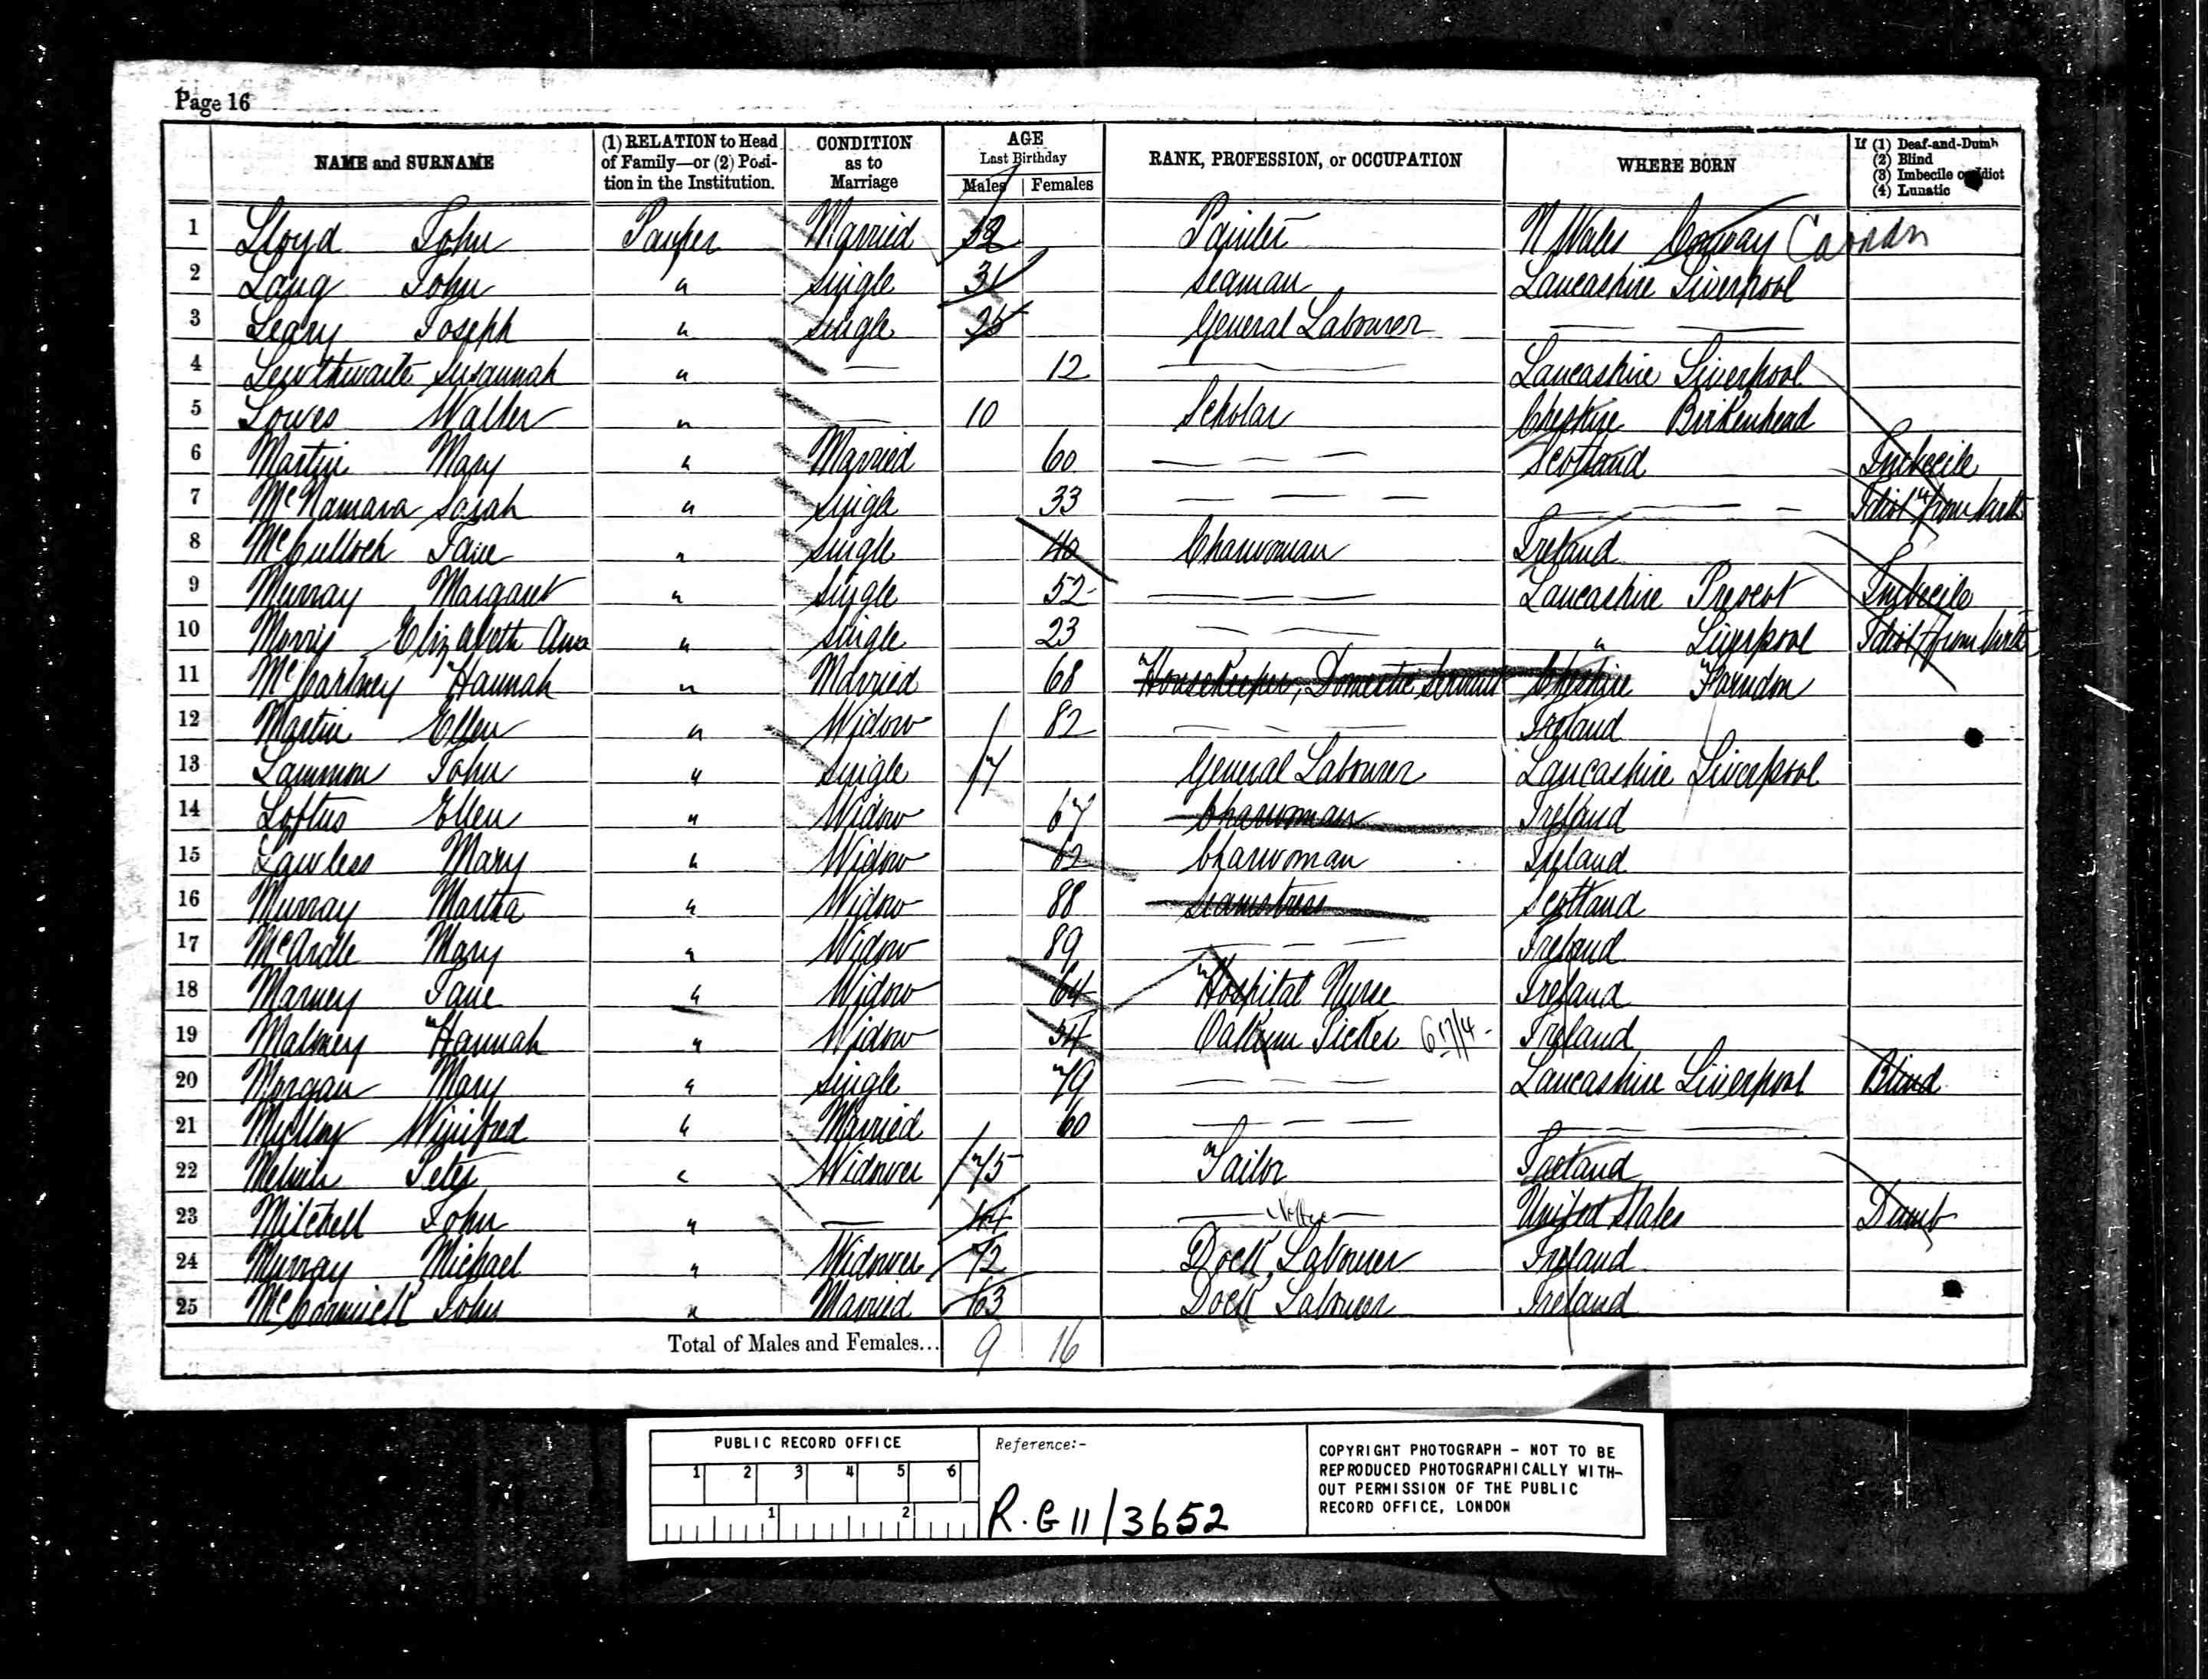 Page 16
NAME and SURNAME | (1) RELATION to Head of Family—or (2) Position in the Institution. | CONDITION as to Marriage | AGE Last Birthday Males | Females | RANK, PROFESSION, or OCCUPATION | WHERE BORN | If (1) Deaf-and-Dumb (2) Blind (3) Imbecile or Idiot (4) Lunatic
1 Lloyd John Pauper Married 32 Painter N Wales Conway
2 Lang John " Single 31 Seaman Lancashire Liverpool
3 Leary Joseph " Single General Labourer — —
4 Lewthwaite Susannah " — 12 — Lancashire Liverpool
5 Lowes Walter " — 10 Scholar Cheshire Birkenhead
6 Martin Mary " Married 60 — — — Scotland Imbecile
7 McNamara Sarah " Single 33 — — — — — — Idiot from birth
8 McCulloch Jane " Single 40 Charwoman Ireland
9 Murray Margaret " Single 52 — — — Lancashire Prescot Imbecile
10 Morris Elizabeth Ann " Single 23 — — " Liverpool Idiot from birth
11 McCartney Hannah " Married 68 Housekeeper, Domestic Servant Cheshire Farndon
12 Martin Ellen " Widow 82 — — — Ireland
13 Lammon John " Single 17 General Labourer Lancashire Liverpool
14 Loftus Ellen " Widow 67 Charwoman Ireland
15 Lawless Mary " Widow 62 Charwoman Ireland
16 Murray Martha " Widow 88 Seamstress Scotland
17 McArdle Mary " Widow 89 — — — Ireland
18 Marney Jane " Widow 64 Hospital Nurse Ireland
19 Maloney Hannah " Widow 54 Oakum Picker Ireland
20 Morgan Mary " Single 79 — — — Lancashire Liverpool Blind
21 Winifred " Married 60 — — — — — —
22 Melvin Peter " Widower 75 Tailor Ireland
23 Mitchell John " — 44 — — United States Dumb
24 Murray Michael " Widower 72 Dock Labourer Ireland
25 McCormick John " Married 63 Dock Labourer Ireland
Total of Males and Females... 9 16
PUBLIC RECORD OFFICE
1 2 3 4 5 6
1 2
Reference:-
R.G 11/3652
COPYRIGHT PHOTOGRAPH – NOT TO BE
REPRODUCED PHOTOGRAPHICALLY WITH-
OUT PERMISSION OF THE PUBLIC
RECORD OFFICE, LONDON